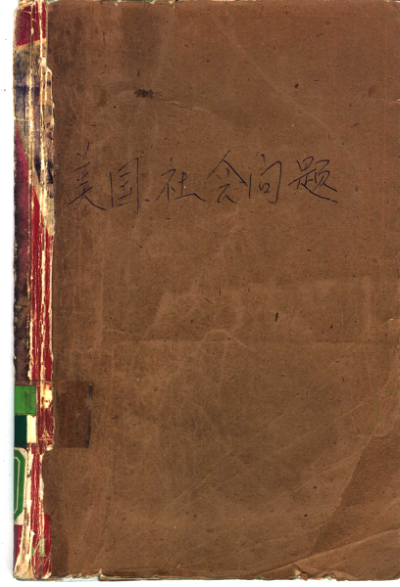 美国社会问题